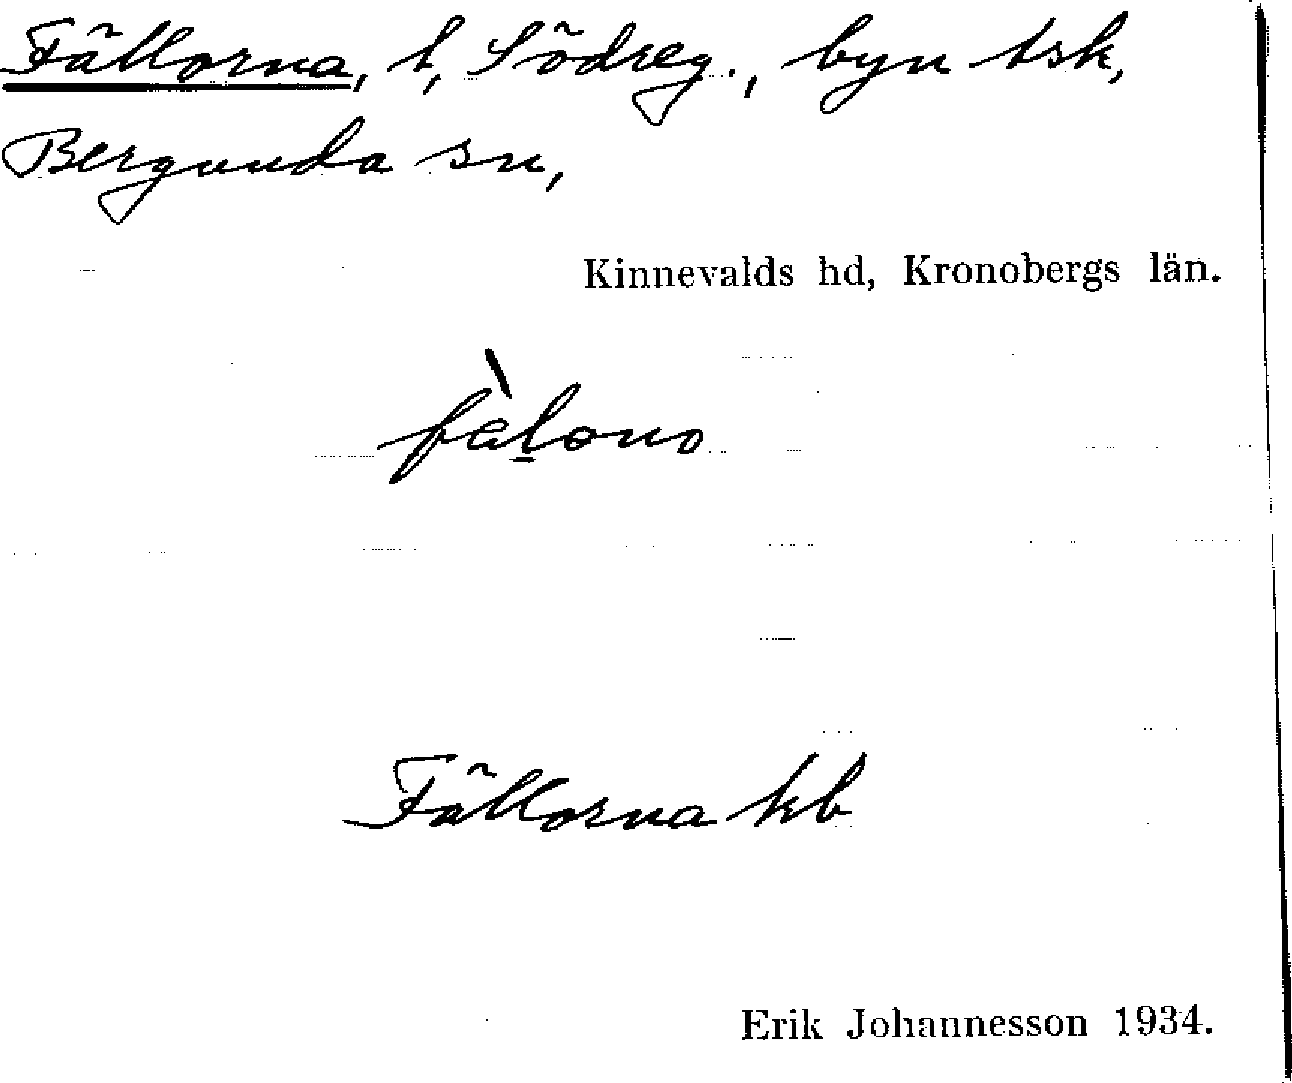 Fällorna, t, Södreg., byn tsk,
Bergunda sn,
Kinnevalds hd, Kronobergs län.
Fällorna kb
Erik Johannesson 1934.